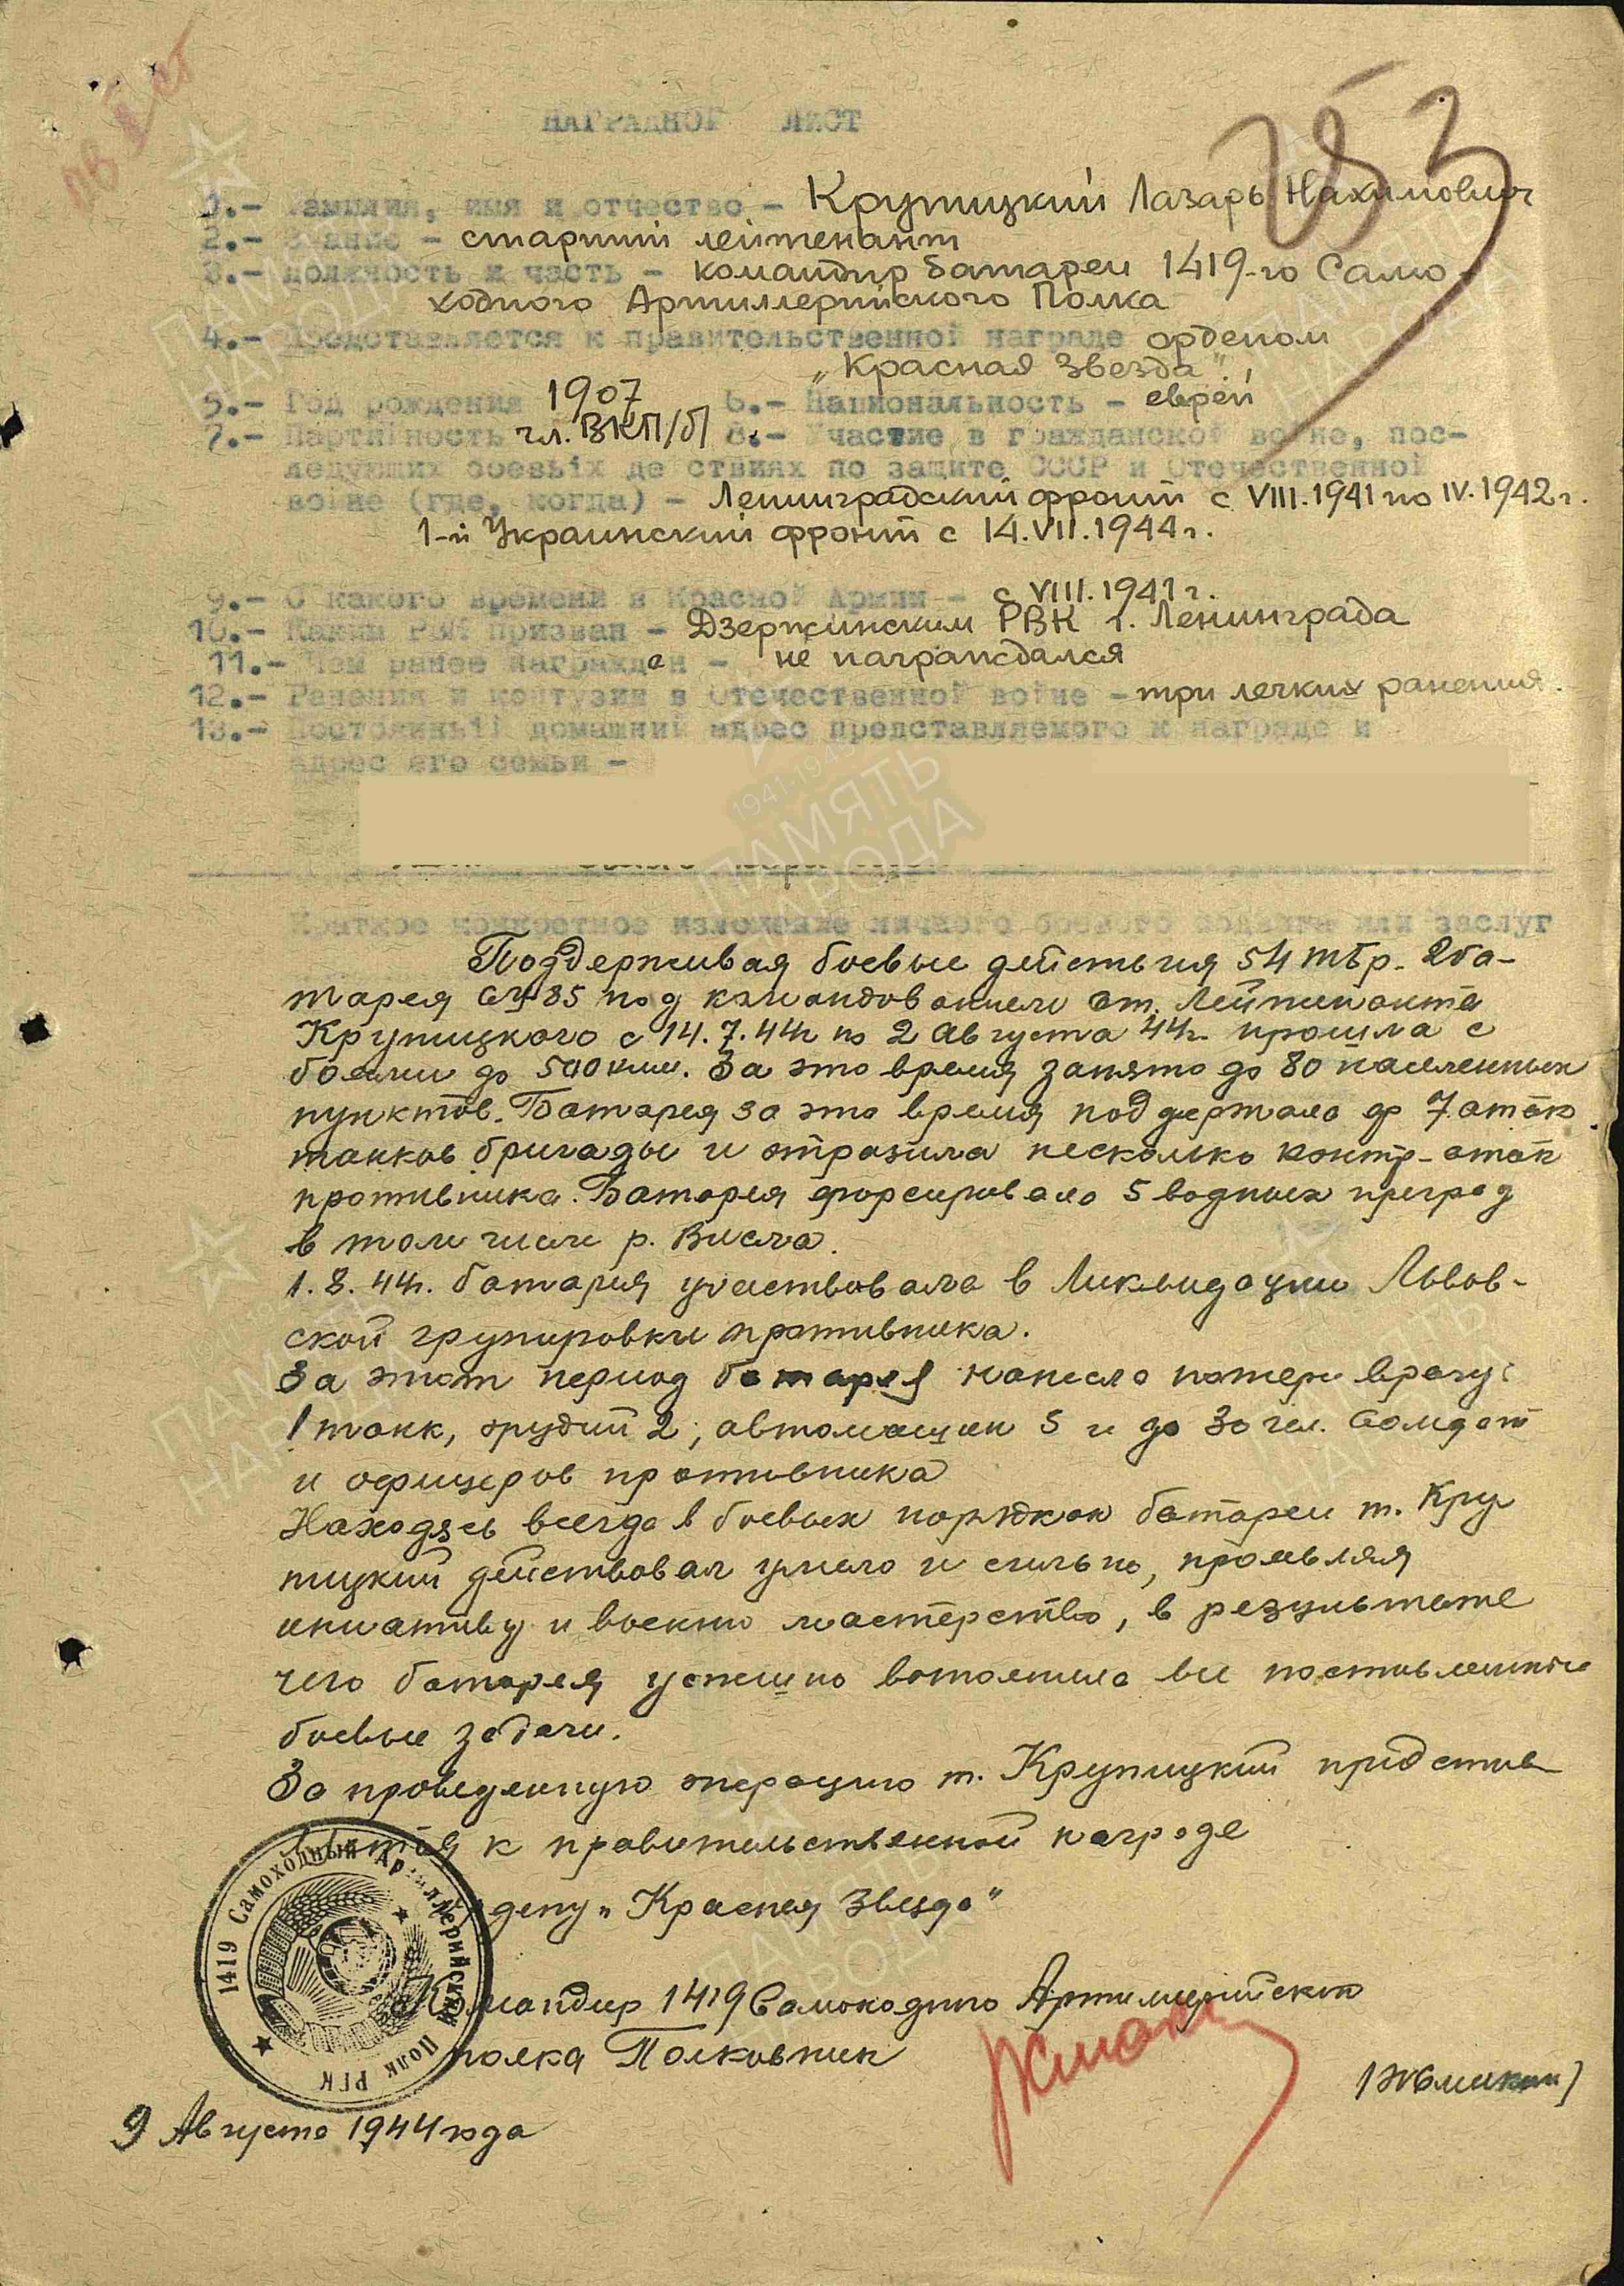 253
НАГРАДНОЙ ЛИСТ
1.- Фамилия, имя и отчество - Крупицкий Лазарь Нахимович
2.- Звание - старший лейтенант
3.- Должность и часть - командир батареи 1419-го Само-
ходного Артиллерийского Полка
4.- Представляется к правительственной награде орденом
„Красная Звезда".
5.- Год рождения 1907 6.- Национальность - еврей
7.- Партийность чл. ВКП/б/ 8.- Участие в гражданской войне, пос-
ледующих боевых действиях по защите СССР и Отечественной
войне (где, когда) - Ленинградский фронт с VIII.1941 по IV.1942 г.
1-й Украинский фронт с 14.VII.1944 г.
9.- С какого времени в Красной Армии - с VIII.1941 г.
10.- Каким РВК призван - Дзержинским РВК г. Ленинграда
11.- Чем ранее награжден - не награждался
12.- Ранения и контузии в Отечественной войне - три легких ранения.
13.- Постоянный домашний адрес представляемого к награде и
адрес его семьи -
Краткое конкретное изложение личного боевого подвига или заслуг
Поддерживая боевые действия 54 тбр. 2 ба-
тарея СУ-85 под командованием ст. Лейтенанта
Крупицкого с 14.7.44г по 2 Августа 44г. прошла с
боями до 500 км. За это время занято до 80 населенных
пунктов. Батарея за это время поддержала до 7 атак
танков бригады и отразила несколько контр-атак
противника. Батарея форсировала 5 водных преград
в том числе р. Висла.
1.8.44г. батарея участвовала в Ликвидации Львов-
ской групировки противника.
За этот период батарея нанесла потери врагу:
1 танк, орудий 2, автомашин 5 и до 30 чел. Солдат
и офицеров противника
Находясь всегда в боевых порядках батареи т. Кру
пицкий действовал умело и сильно, проявляя
инциативу и военно мастерство, в результате
чего батарея успешно выполнила все поставленные
боевые задачи.
За проведенную операцию т. Крупицкий представ
ляется к правительственной награде
Ордену „Красная Звезда"
Командир 1419 Самоходного Артиллерийского
полка Полковник
9 Августа 1944 года
1419 Самоходный Артиллерийский Полк РГК
ПАМЯТЬ НАРОДА
1941-1945